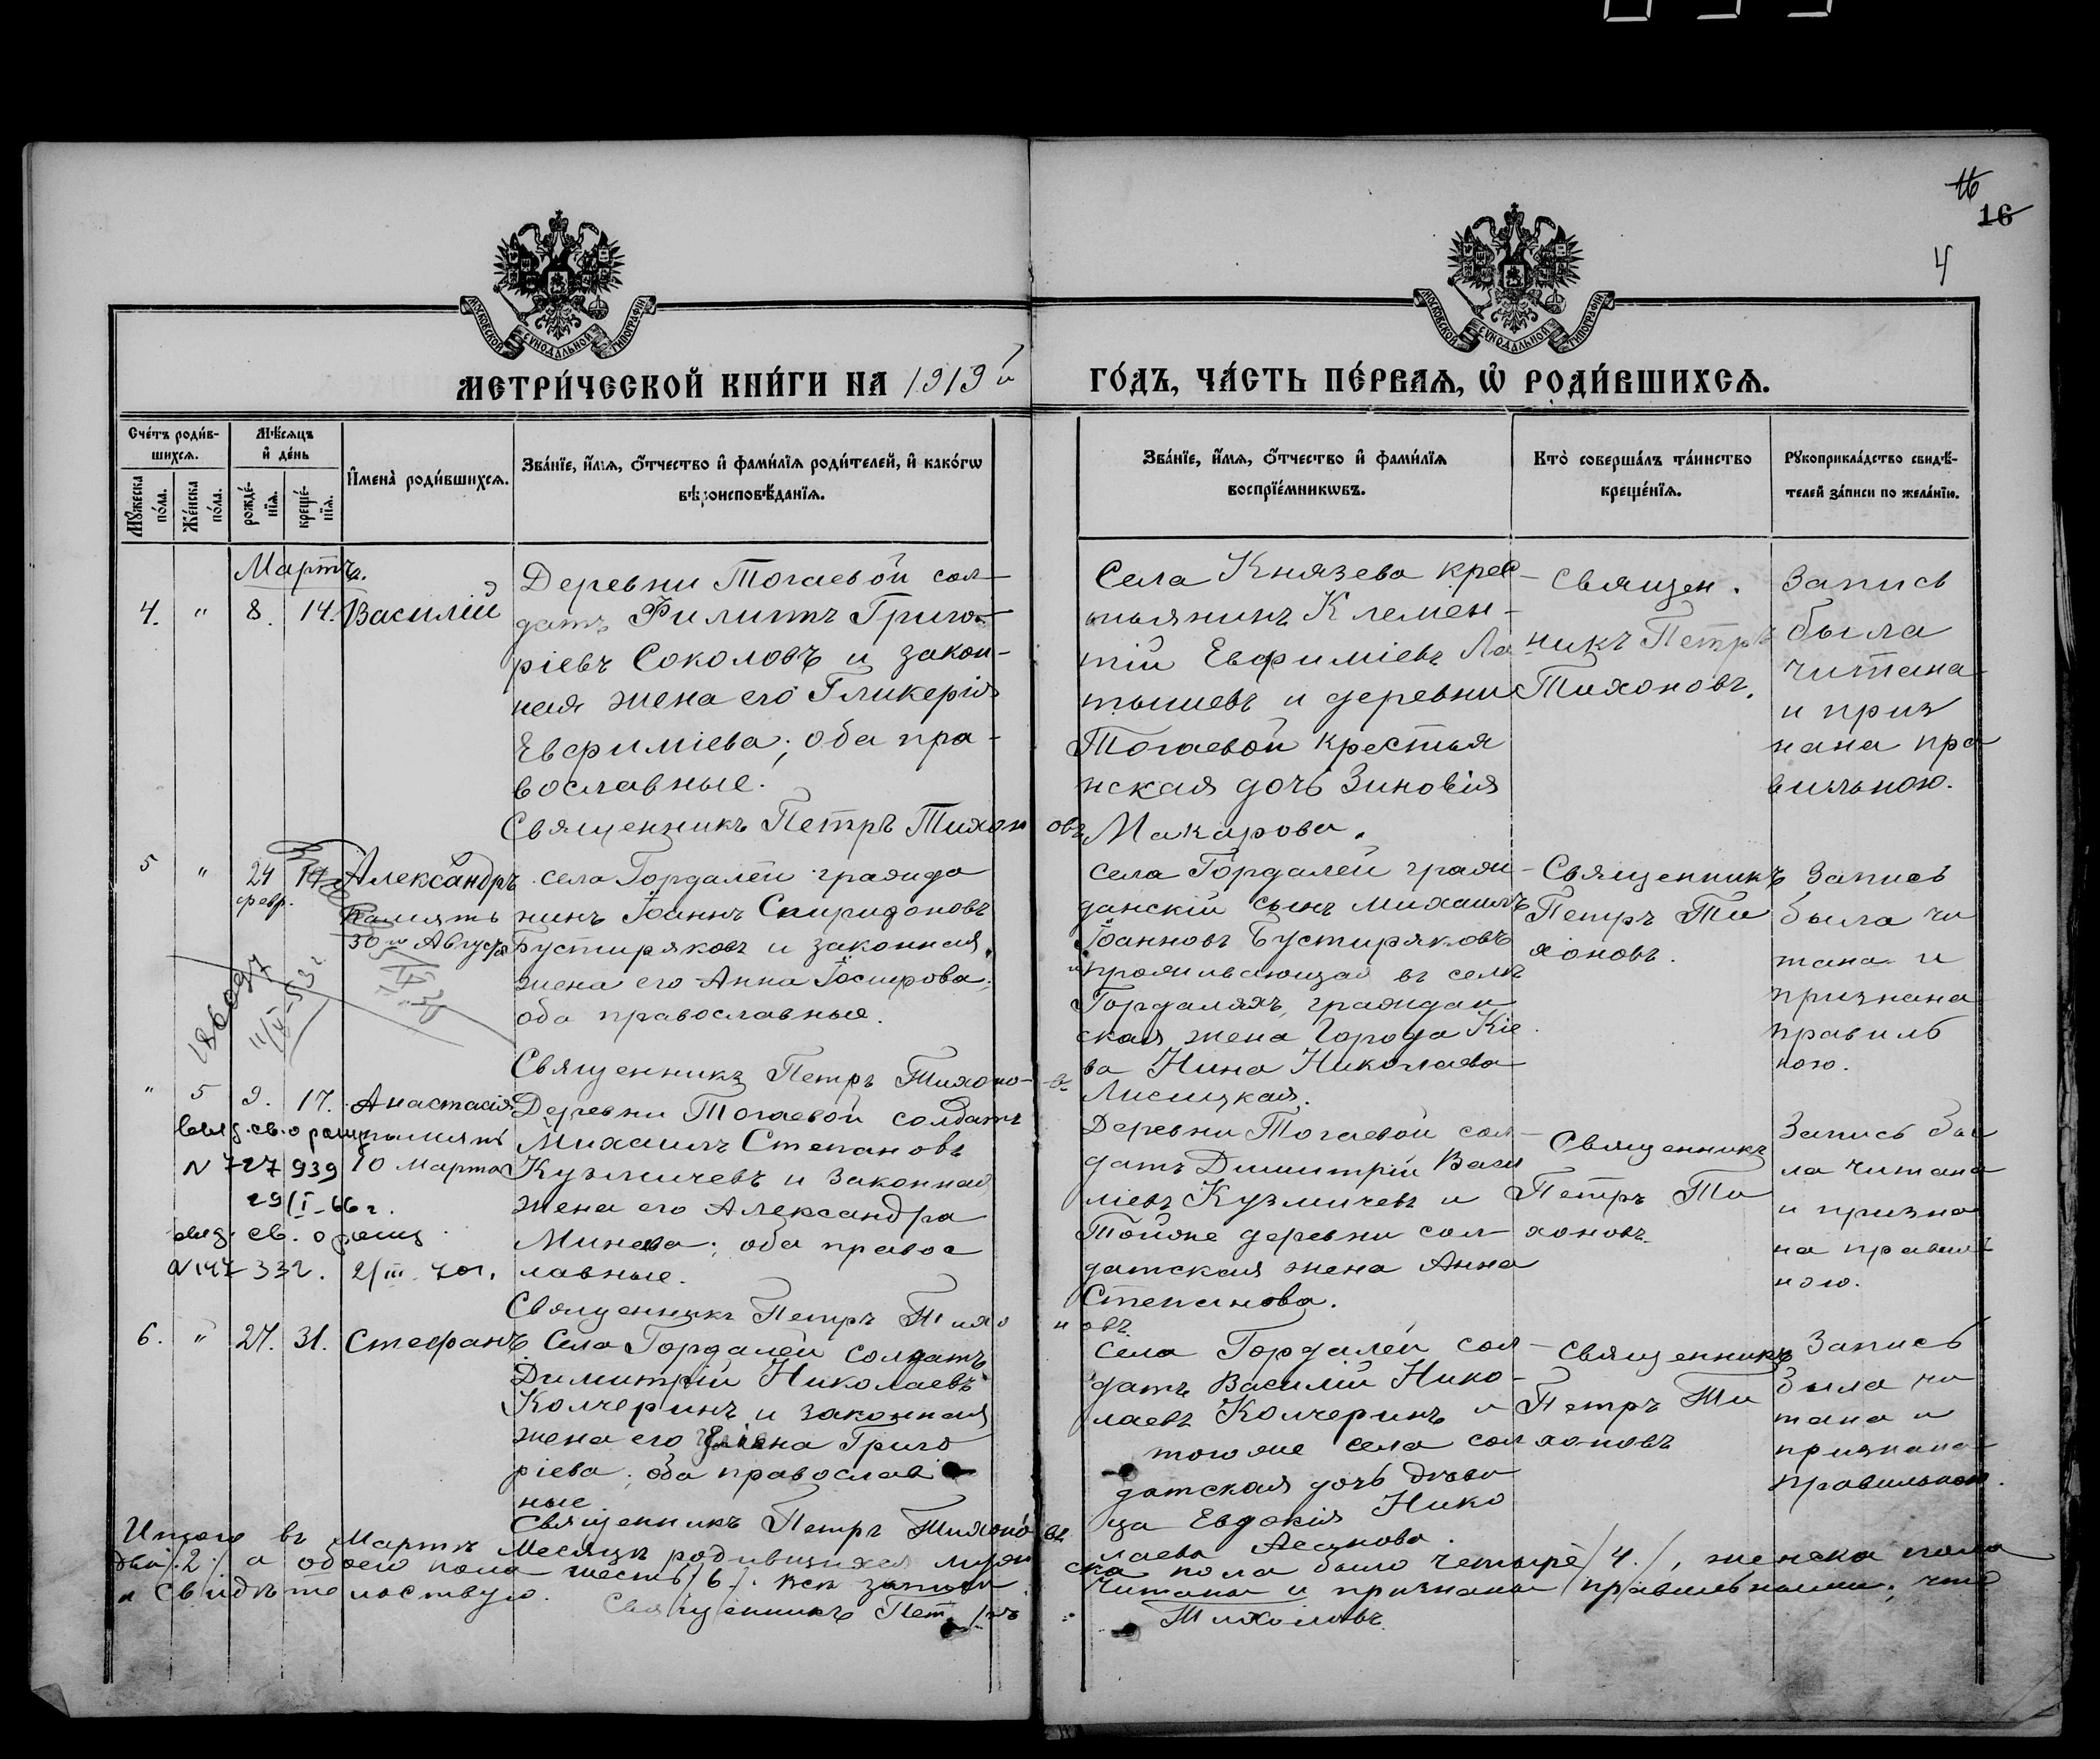 16
16
4
МОСКОВСКОЙ СѴНОДАЛЬНОЙ ТИПОГРАФІИ
МОСКОВСКОЙ СѴНОДАЛЬНОЙ ТИПОГРАФІИ
МЕТРИ́ЧЕСКОЙ КНИ́ГИ НА 1919й ГО́ДЪ, ЧА́СТЬ ПЕ́РВАѦ, Ѡ҆ РОДИ́ВШИХСѦ.
Сче́тъ роди́в-
шихсѧ.
Мꙋ́жеска по́ла.
Же́нска по́ла.
Мѣ́сѧцъ
и҆ де́нь
рожде́-
нїѧ.
креще́-
нїѧ.
И҆мена̀ роди́вшихсѧ.
Зва́нїе, и҆́мѧ, ѻ҆́тчество и҆ фами́лїѧ роди́телей, и҆ како́гѡ
вѣроисповѣ́данїѧ.
Зва́нїе, и҆́мѧ, ѻ҆́тчество и҆ фами́лїѧ
воспрїе́мникѡвъ.
Кто̀ соверша́лъ та́инство
креще́нїѧ.
Рꙋкоприкла́дство свидѣ́-
телей за́писи по жела́нїю.
Мартъ.
4. " 8. 14. Василій
Деревни Тогаевой сол-
датъ Филиппъ Григо-
ріевъ Соколовъ и закон-
ная жена его Гликерія
Евфиміева; оба пра-
вославные.
Священникъ Петръ Тихоновъ
Села Князева крес-
тьянинъ Клемен-
тій Евфиміевъ Ла
тышевъ и деревни
Тогаевой крестья
нская дочь Зиновія
Макарова.
Священ.
никъ Петръ
Тихоновъ.
Запись
была
читана
и приз
нана пра
вильною.
5 " 24 февр. Александръ
память
30го Августа
села Гордалей гражда
нинъ Іоаннъ Спиридоновъ
Бустиряковъ и законная
жена его Анна Іосифова;
оба православные.
Священникъ Петръ Тихоно-въ
Села Гордалей граж-
данскій сынъ Михаилъ
Іоанновъ Бустиряковъ
и проживающая въ селѣ
Гордаляхъ, граждан
ская жена города Кіе
ва Нина Николаева
Лисицкая.
Священникъ
Петръ Ти
хоновъ.
Запись
была чи
тана и
признана
правиль
ною.
" 5 9. 17. Анастасія
память
10 Марта
Деревни Тогаевой солдатъ
Михаилъ Степановъ
Кузьмичевъ и законная
жена его Александра
Минева; оба правос
лавные.
Священникъ Петръ Тихоновъ
выд. св. о рожд
N 727 939
29/I-66 г.
выд. св. о рожд.
N 147 332. 2/III 70 г.
Деревни Тогаевой сол-
датъ Димитрій Васи
ліевъ Кузмичевъ и
Тойже деревни сол-
датская жена Анна
Степанова.
Священникъ
Петръ Ти
хоновъ.
Запись бы
ла читана
и призна
на правиль-
ною.
6. " 27. 31. Стефанъ
Села Гордалей солдатъ
Димитрій Николаевъ
Колчеринъ и законная
жена его Елена Григо
ріева; оба православ
ные.
Священникъ Петръ Тихоновъ
Села Гордалей сол-
датъ Василій Нико-
лаевъ Колчеринъ и
тогоже села сол
датская дочь дѣви
ца Евдокія Нико
лаева
Священникъ
Петръ Ти
хоновъ
Запись
была чи
тана и
признана
правильною.
Итого въ Мартѣ Месяцѣ родившихся муже ска пола было четыре /4./, женска пола
два /.2./ а обоего пола шесть /6/. Всѣ записи читаны и признаны правильными, что
и свидѣтельствую. Священникъ Петръ Тихоновъ.